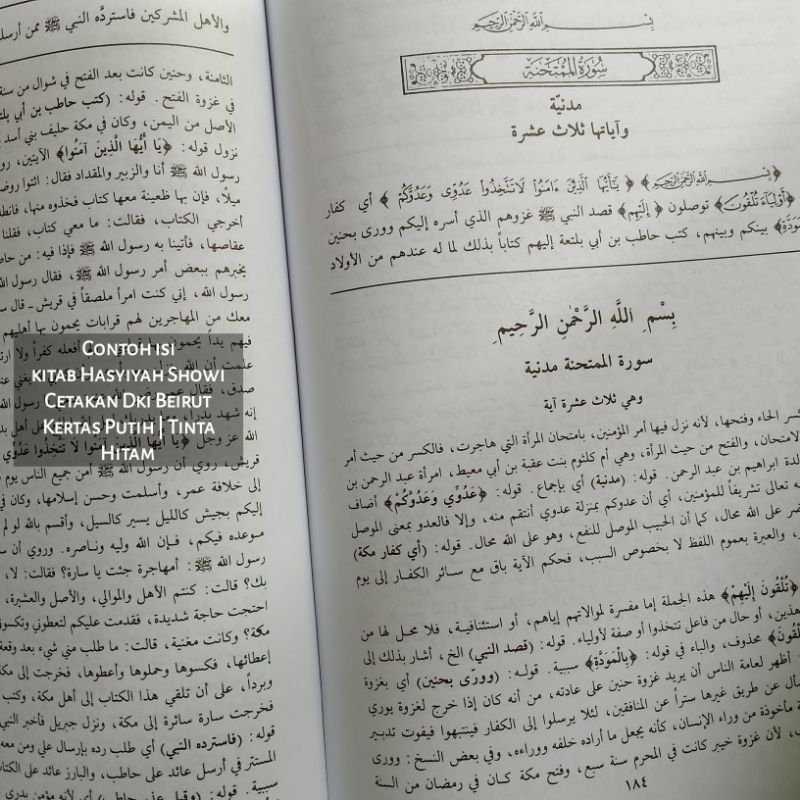 بسم الله الرحمن الرحيم
سورة الممتحنة
مدنيّة
وآياتها ثلاث عشرة
﴿بسم الله الرحمن الرحيم﴾ ﴿يَٰٓأَيُّهَا الَّذِينَ ءَامَنُوا لَا تَتَّخِذُوا عَدُوِّى وَعَدُوَّكُمْ﴾ أي كفار
﴿أَوْلِيَآءَ تُلْقُونَ﴾ توصلون ﴿إِلَيْهِم﴾ قصد النبي ﷺ غزوهم الذي أسره إليكم وورى بحنين
بينكم وبينهم، كتب حاطب بن أبي بلتعة إليهم كتاباً بذلك لما له عندهم من الأولاد
بِسْمِ اللَّهِ الرَّحْمٰنِ الرَّحِيمِ
سورة الممتحنة مدنية
وهي ثلاث عشرة آية
كسر الحاء وفتحها، لأنه نزل فيها أمر المؤمنين، بامتحان المرأة التي هاجرت، فالكسر من حيث أمر
الامتحان، والفتح من حيث المرأة، وهي أم كلثوم بنت عقبة بن أبي معيط، امرأة عبد الرحمن بن
لدة ابراهيم بن عبد الرحمن. قوله: (مدنية) أي بإجماع. قوله: ﴿عَدُوِّي وَعَدُوَّكُمْ﴾ أضاف
ه تعالى تشريفاً للمؤمنين، أي أن عدوكم بمنزلة عدوي أنتقم منه، وإلا فالعدو بمعنى الموصل
ضر على الله محال، كما أن الحبيب الموصل للنفع، وهو على الله محال. قوله: (أي كفار مكة)
ر، والعبرة بعموم اللفظ لا بخصوص السبب، فحكم الآية باق مع سائر الكفار إلى يوم
﴿تُلْقُونَ إِلَيْهِمْ﴾ هذه الجملة إما مفسرة لموالاتهم إياهم، أو استئنافية، فلا محل لها من
هذين، أو حال من فاعل تتخذوا أو صفة لأولياء. قوله: (قصد النبي) الخ، أشار بذلك إلى
محذوف، والباء في قوله: ﴿بِالْمَوَدَّةِ﴾ سببية. قوله: (وورّى بحنين) أي بغزوة
أظهر لعامة الناس أن يريد غزوة حنين على عادته، من أنه كان إذا خرج لغزوة يوري
سأل عن طريق غيرها ستراً عن المنافقين، لئلا يرسلوا إلى الكفار فينتبهوا فيفوت تدبير
ة مأخوذة من وراء الإنسان، كأنه يجعل ما أراده خلفه ووراءه، وفي بعض النسخ: وورى
، لأن غزوة خيبر كانت في المحرم سنة سبع، وفتح مكة كان في رمضان من السنة
١٨٤
والأهل المشركين فاسترده النبي ﷺ ممن أرسل
الثامنة، وحنين كانت بعد الفتح في شوال من سنة
في غزوة الفتح. قوله: (كتب حاطب بن أبي بلت
الأصل من اليمن، وكان في مكة حليف بني أسد
نزول قوله: ﴿يَا أَيُّهَا الَّذِينَ آمَنُوا﴾ الآيتين، رو
رسول الله ﷺ أنا والزبير والمقداد فقال: ائتوا روض
ميلاً، فإن بها ظعينة معها كتاب فخذوه منها، فانط
أخرجي الكتاب، فقالت: ما معي كتاب، فقلنا
عقاصها، فأتينا به رسول الله ﷺ فإذا فيه: من حا
يخبرهم ببعض أمر رسول الله ﷺ، فقال رسول الله
رسول الله، إني كنت امرأ ملصقاً في قريش ـ قال س
معك من المهاجرين لهم قرابات يحمون بها أهليهم
Contoh isi
kitab Hasyiyah Showi
Cetakan Dki Beirut
Kertas Putih | Tinta
Hitam
قريش، روي أن رسول الله ﷺ أمن جميع الناس يوم
إلى خلافة عمر، وأسلمت وحسن إسلامها، وكان في
إليكم بجيش كالليل يسير كالسيل، وأقسم بالله لو لم
موعده فيكم، فإن الله وليه وناصره. وروي أن س
رسول الله ﷺ: أمهاجرة جئت يا سارة؟ فقالت: لا،
بك؟ قالت: كنتم الأهل والموالي، والأصل والعشيرة،
احتجت حاجة شديدة، فقدمت عليكم لتعطوني وتكسو
مكة؟ وكانت مغنية، قالت: ما طلب مني شيء بعد وقعة
إعطائها، فكسوها وحملوها وأعطوها، فخرجت إلى مك
وبرداً، على أن تلقي هذا الكتاب إلى أهل مكة، وكتب
فخرجت سارة سائرة إلى مكة، ونزل جبريل فأخبر النبي
قوله: (فاسترده النبي) أي طلب رده بإرسال علي ومن معه
المستتر في أرسل عائد على حاطب، والبارز عائد على الكتا